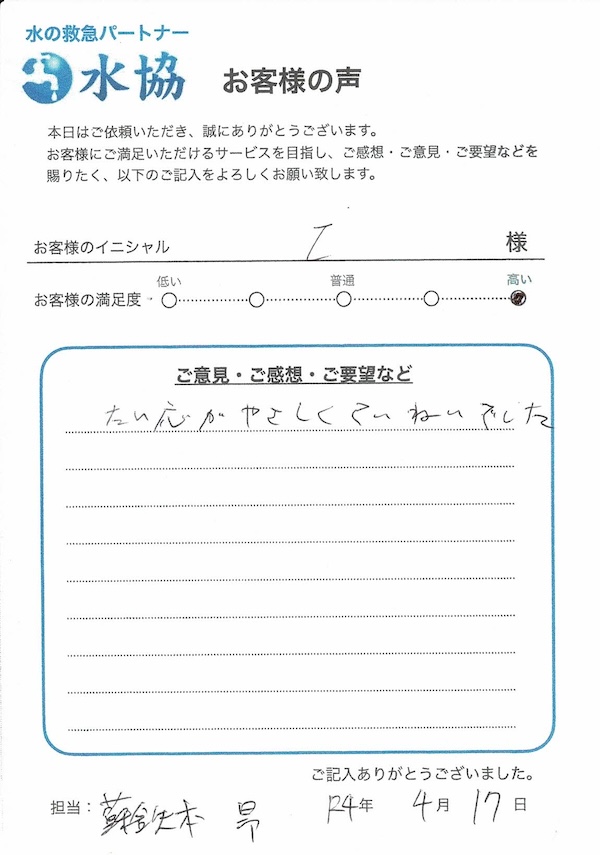 水の救急パートナー
水協 お客様の声
本日はご依頼いただき、誠にありがとうございます。
お客様にご満足いただけるサービスを目指し、ご感想・ご意見・ご要望などを
賜りたく、以下のご記入をよろしくお願い致します。
お客様のイニシャル I 様
低い 普通 高い
お客様の満足度
ご意見・ご感想・ご要望など
たい応がやさしくていねいでした
ご記入ありがとうございました。
担当: 昂 R4年 4月 17日